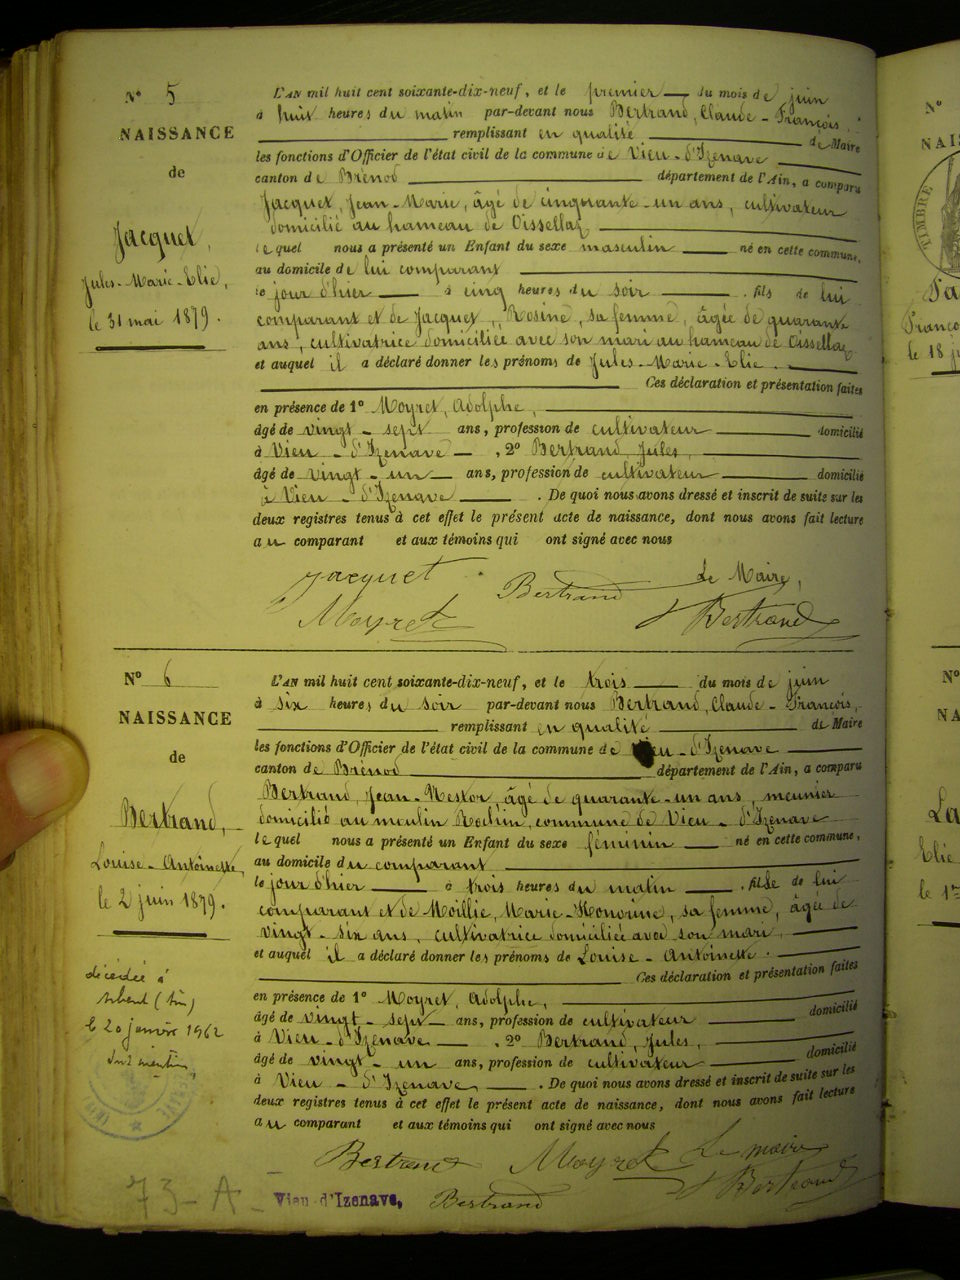 N° 5
NAISSANCE
de
Jacquet,
Jules-Marie-Elie,
le 31 mai 1879.
L'AN mil huit cent soixante-dix-neuf, et le premier du mois de juin
à huit heures du matin par-devant nous Bertrand, Claude-François,
remplissant en qualité de Maire
les fonctions d'Officier de l'état civil de la commune de Vieu-d'Izenave
canton de Brénod département de l'Ain, a comparu
Jacquet, Jean-Marie, âgé de cinquante-un ans, cultivateur
domicilié au hameau de Oissellaz
lequel nous a présenté un Enfant du sexe masculin né en cette commune,
au domicile de lui comparant
le jour d'hier à cinq heures du soir . fils de lui
comparant et de Jacquet, Rosine, sa femme, âgée de quarante
ans, cultivatrice domiciliée avec son mari au hameau de Oissellaz
et auquel il a déclaré donner les prénoms de Jules-Marie-Elie.
Ces déclaration et présentation faites
en présence de 1° Moyret, Adolphe,
âgé de vingt-sept ans, profession de cultivateur domicilié
à Vieu-d'Izenave , 2° Bertrand, Jules,
âgé de vingt-un ans, profession de cultivateur domicilié
à Vieu-d'Izenave . De quoi nous avons dressé et inscrit de suite sur les
deux registres tenus à cet effet le présent acte de naissance, dont nous avons fait lecture
au comparant et aux témoins qui ont signé avec nous
Jacquet Bertrand Le Maire,
Moyret Bertrand
N° 6
NAISSANCE
de
Bertrand,
Louise-Antoinette,
le 2 juin 1879.
décédée à
(Ain)
le 20 janvier 1962
L'AN mil huit cent soixante-dix-neuf, et le trois du mois de juin
à six heures du soir par-devant nous Bertrand, Claude-François,
remplissant en qualité de Maire
les fonctions d'Officier de l'état civil de la commune de Vieu-d'Izenave
canton de Brénod département de l'Ain, a comparu
Bertrand, Jean-Nestor, âgé de quarante-un ans, meunier
domicilié au moulin commune de Vieu-d'Izenave
lequel nous a présenté un Enfant du sexe féminin né en cette commune,
au domicile du comparant
le jour d'hier à trois heures du matin . fille de lui
comparant et de Moillie, Marie-Honorine, sa femme, âgée de
vingt-six ans, cultivatrice domiciliée avec son mari,
et auquel il a déclaré donner les prénoms de Louise-Antoinette.
Ces déclaration et présentation faites
en présence de 1° Moyret, Adolphe,
âgé de vingt-sept ans, profession de cultivateur domicilié
à Vieu-d'Izenave , 2° Bertrand, Jules,
âgé de vingt-un ans, profession de cultivateur domicilié
à Vieu-d'Izenave, . De quoi nous avons dressé et inscrit de suite sur les
deux registres tenus à cet effet le présent acte de naissance, dont nous avons fait lecture
au comparant et aux témoins qui ont signé avec nous
Bertrand Moyret Le maire
Bertrand Bertrand
73-A
Vieu d'Izenave,
N°
TIMBRE
le 18
N°
Elie